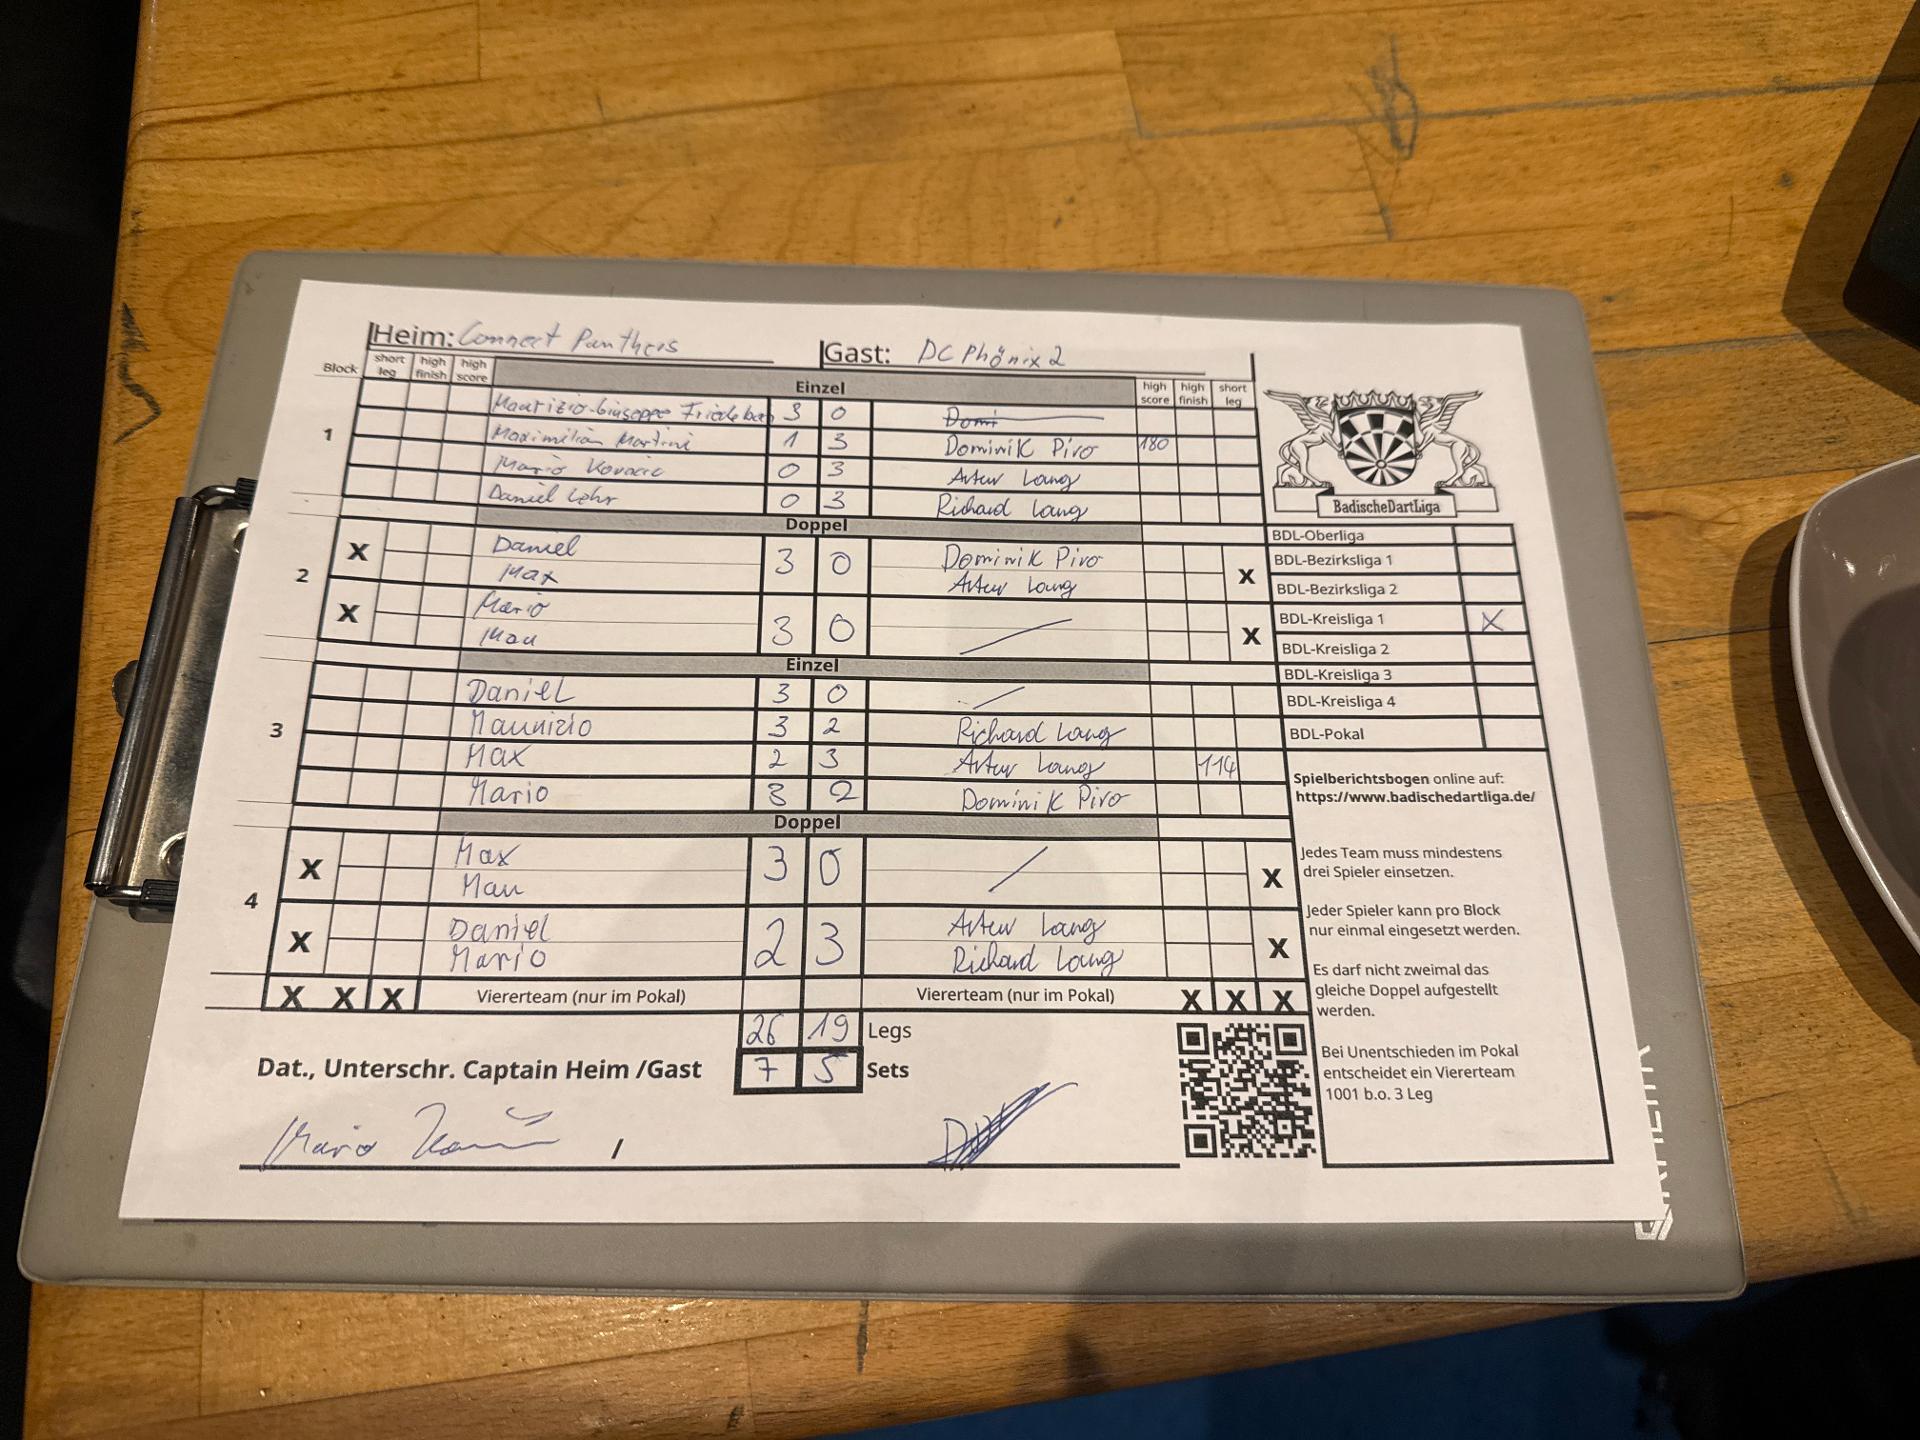 Heim: Connect Panthers Gast: DC Phönix 2
Block short leg high finish high score Einzel high score high finish short leg
1
Maurizio-Giuseppe 3 0 Domi
Maximilian Martini 1 3 Dominik Piro 180
Mario Kovacic 0 3 Artur Lang
Daniel Lehr 0 3 Richard Lang
Doppel
2
X Daniel 3 0 Dominik Piro X
Max Artur Lang
X Mario 3 0 X
Mau
Einzel
3
Daniel 3 0 /
Maurizio 3 2 Richard Lang
Max 2 3 Artur Lang 114
Mario 3 2 Dominik Piro
Doppel
4
X Max 3 0 / X
Mau
X Daniel 2 3 Artur Lang X
Mario Richard Lang
X X X Viererteam (nur im Pokal) Viererteam (nur im Pokal) X X X
26 19 Legs
7 5 Sets
Dat., Unterschr. Captain Heim /Gast
Mario /
BadischeDartLiga
BDL-Oberliga
BDL-Bezirksliga 1
BDL-Bezirksliga 2
BDL-Kreisliga 1 X
BDL-Kreisliga 2
BDL-Kreisliga 3
BDL-Kreisliga 4
BDL-Pokal
Spielberichtsbogen online auf:
https://www.badischedartliga.de/
Jedes Team muss mindestens
drei Spieler einsetzen.
Jeder Spieler kann pro Block
nur einmal eingesetzt werden.
Es darf nicht zweimal das
gleiche Doppel aufgestellt
werden.
Bei Unentschieden im Pokal
entscheidet ein Viererteam
1001 b.o. 3 Leg